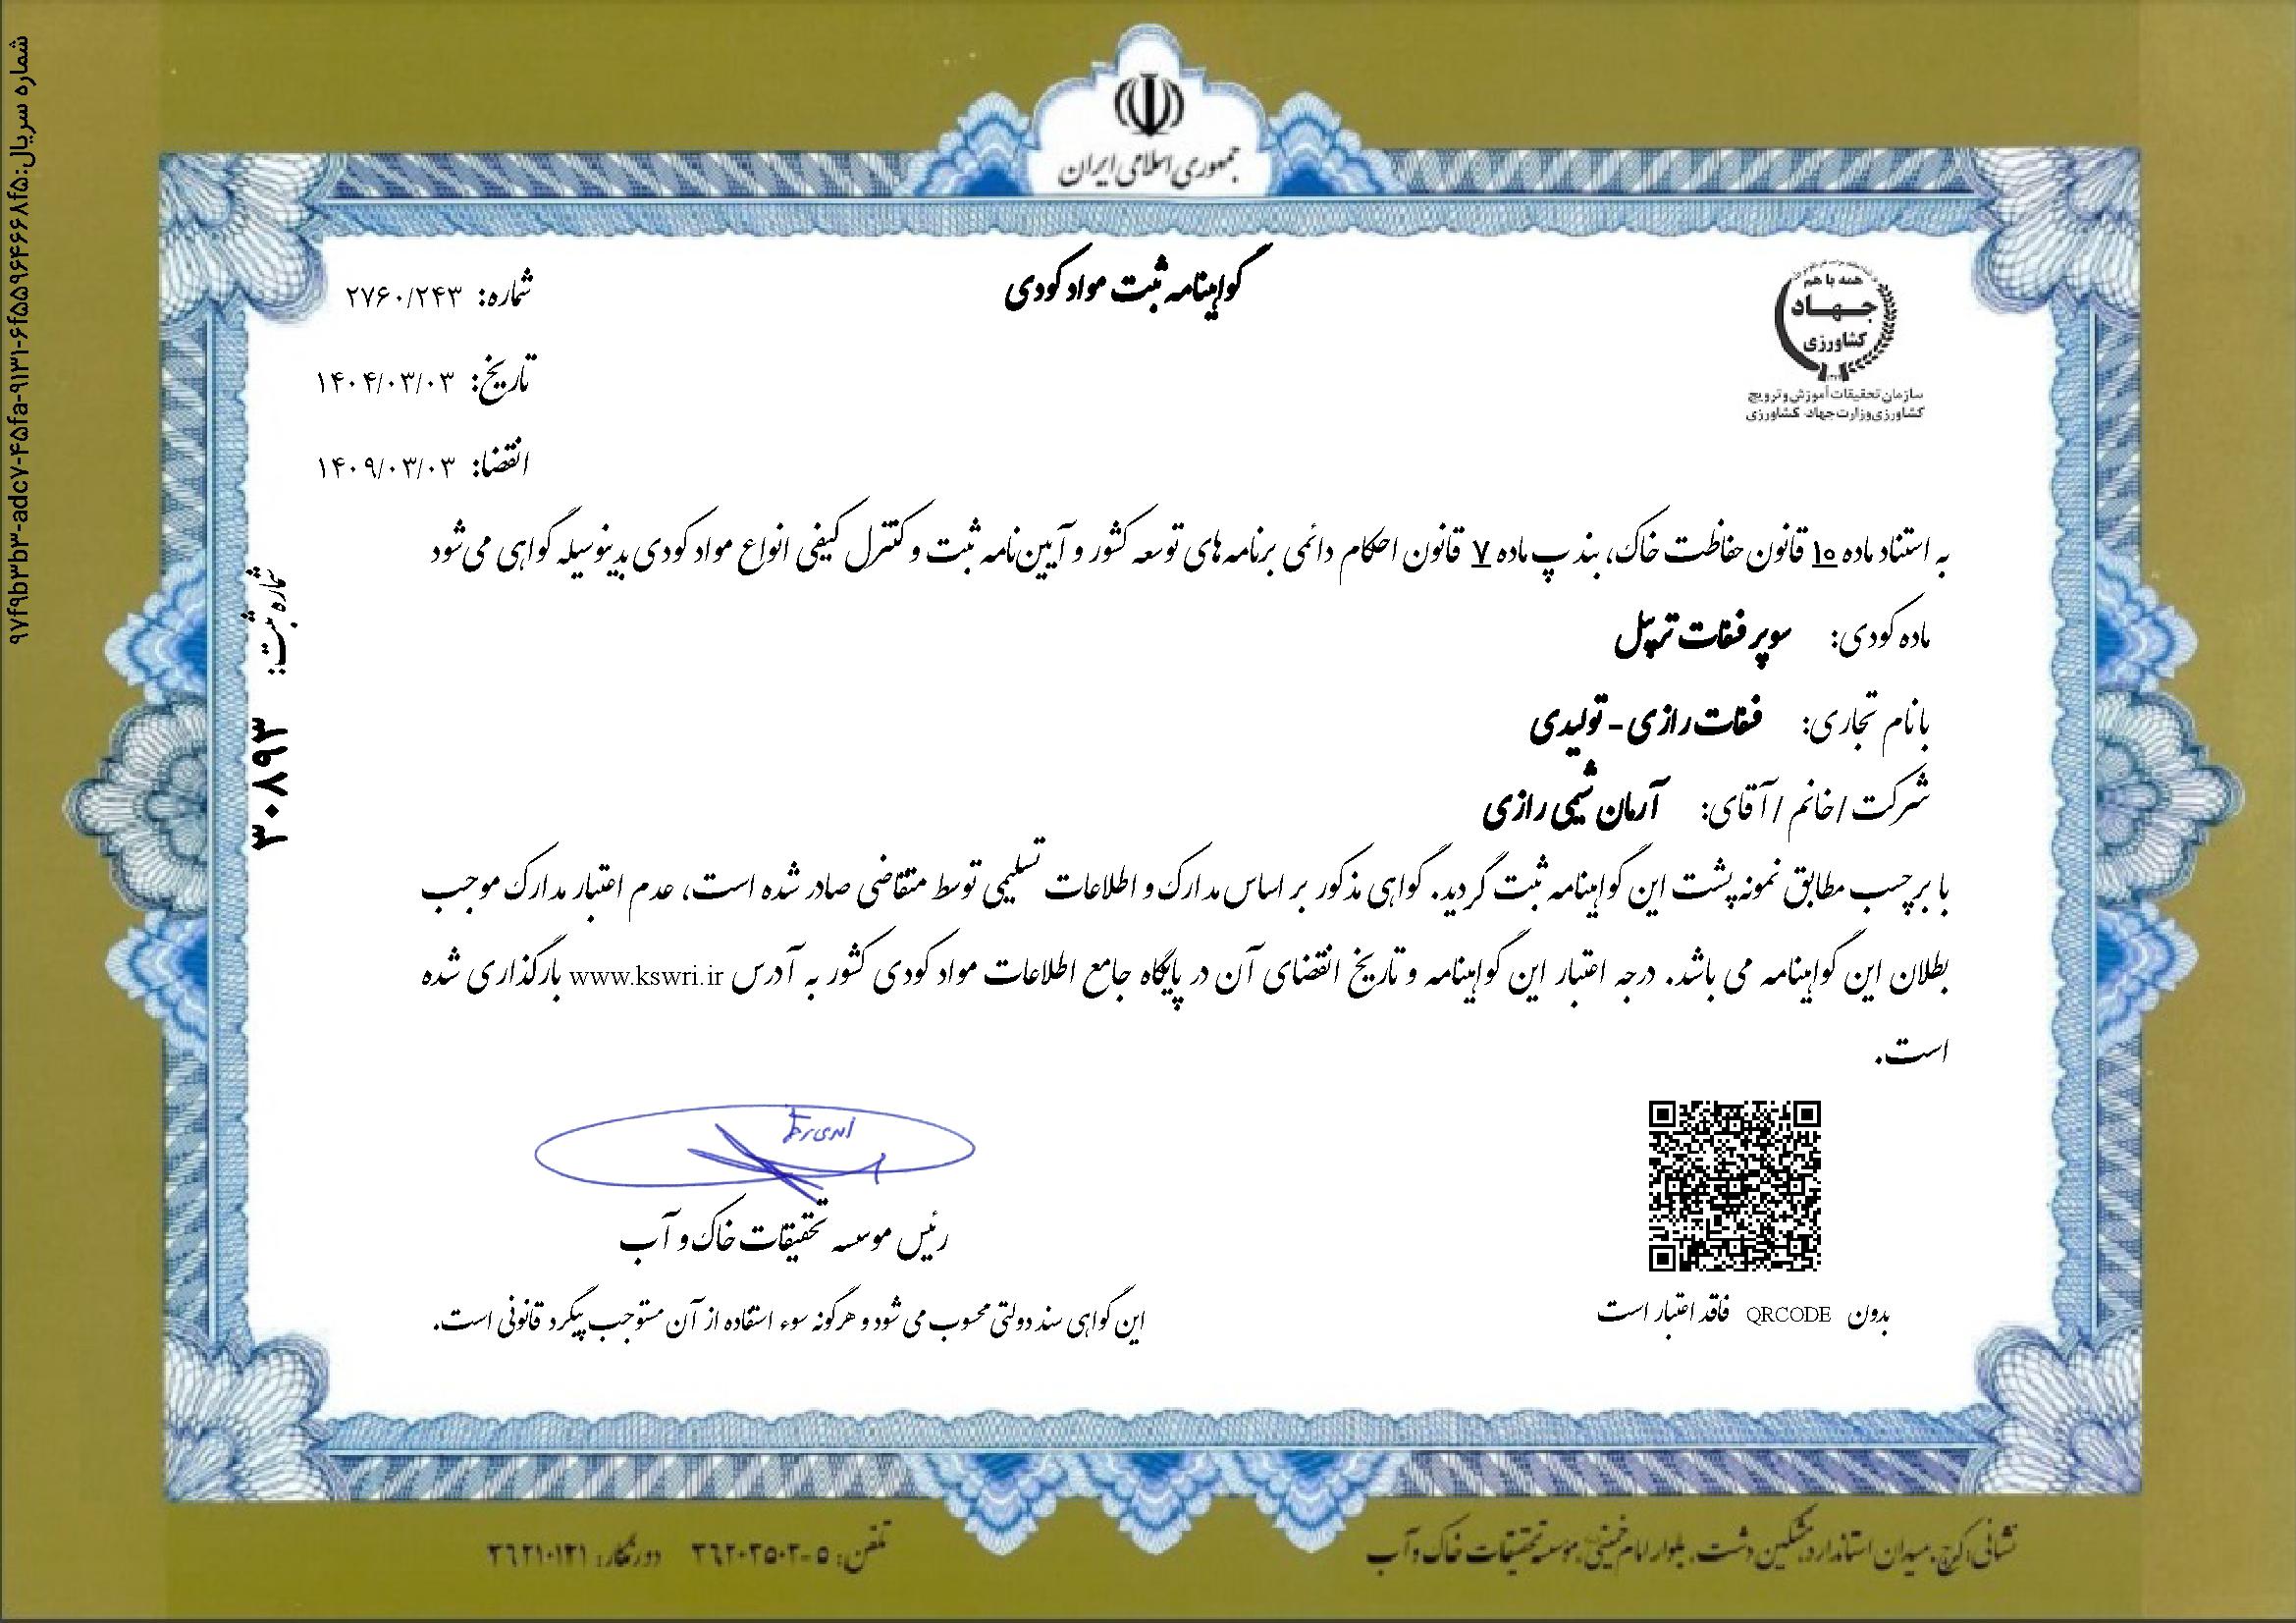 جمهوری اسلامی ایران
همه با هم
جهاد
کشاورزی
سازمان تحقیقات آموزش و ترویج
کشاورزی وزارت جهاد کشاورزی
گواهینامه ثبت مواد کودی
شماره: ۲۷۶۰/۲۴۳
تاریخ: ۱۴۰۴/۰۳/۰۳
انقضا: ۱۴۰۹/۰۳/۰۳
به استناد ماده ۱۰ قانون حفاظت خاک، بند پ ماده ۷ قانون احکام دائمی برنامه های توسعه کشور و آیین نامه ثبت و کنترل کیفی انواع مواد کودی بدینوسیله گواهی می شود
ماده کودی: سوپر فسفات تریپل
با نام تجاری: فسفات رازی - تولیدی
شرکت / خانم / آقای: آرمان شیمی رازی
با برچسب مطابق نمونه پشت این گواهینامه ثبت گردید. گواهی مذکور بر اساس مدارک و اطلاعات تسلیمی توسط متقاضی صادر شده است، عدم اعتبار مدارک موجب
بطلان این گواهینامه می باشد. درجه اعتبار این گواهینامه و تاریخ انقضای آن در پایگاه جامع اطلاعات مواد کودی کشور به آدرس www.kswri.ir بارگذاری شده
است.
رئیس موسسه تحقیقات خاک و آب
بدون QRCODE فاقد اعتبار است
این گواهی سند دولتی محسوب می شود و هرگونه سوء استفاده از آن مستوجب پیگرد قانونی است.
شماره ثبت: ۳۰۸۹۳
شماره سریال: ۹۷f۹b۳b۳-adc۷-۴۵fa-۹۱۳۱-۶f۵۵۹۶۴۶۶۸f۵
نشانی: کرج، میدان استاندارد، مشکین دشت، بلوار امام خمینی، موسسه تحقیقات خاک و آب
تلفن: ۵-۳۶۲۰۲۵۰۲ دورنگار: ۳۶۲۱۰۱۲۱